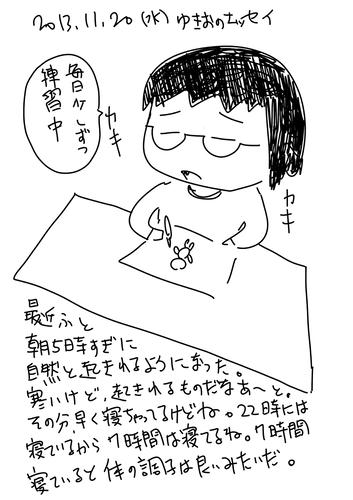 2013.11.20 (水) ゆきおのエッセイ
毎日少しずつ
練習中
カキ
カキ
最近ふと
朝5時すぎに
自然と起きれるようになった。
寒いけど、起きれるものだなあ〜と。
その分、早く寝ちゃってるけどね。22時には
寝ているから7時間は寝てるね。7時間
寝ていると体の調子は良いみたいだ。